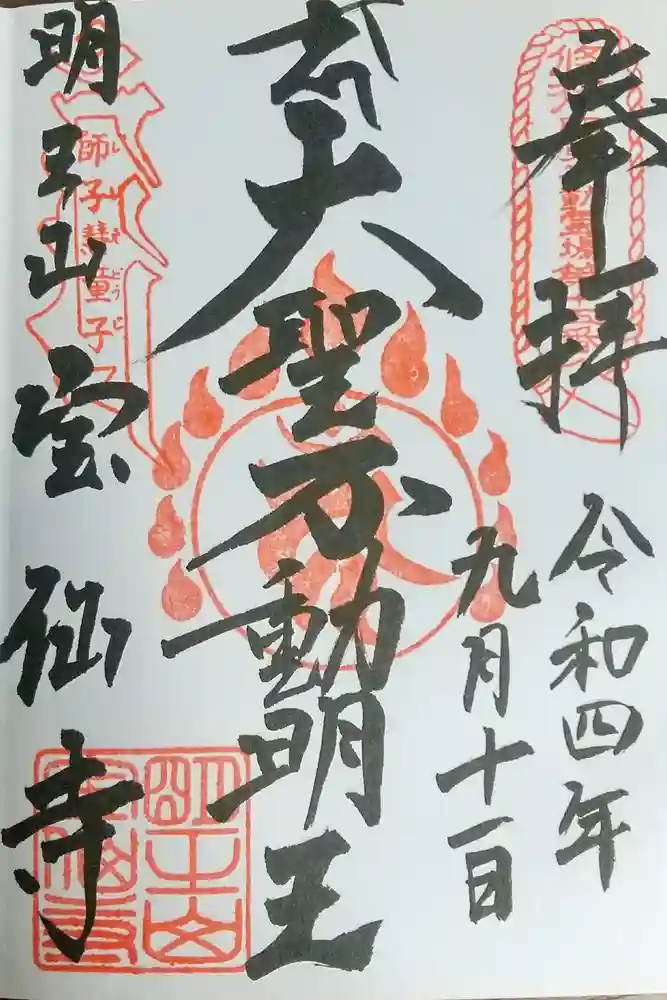 奉拝
令和四年
九月十一日
大聖不動明王
明王山
宝仙寺
師子慧童子
明王山
寶仙寺